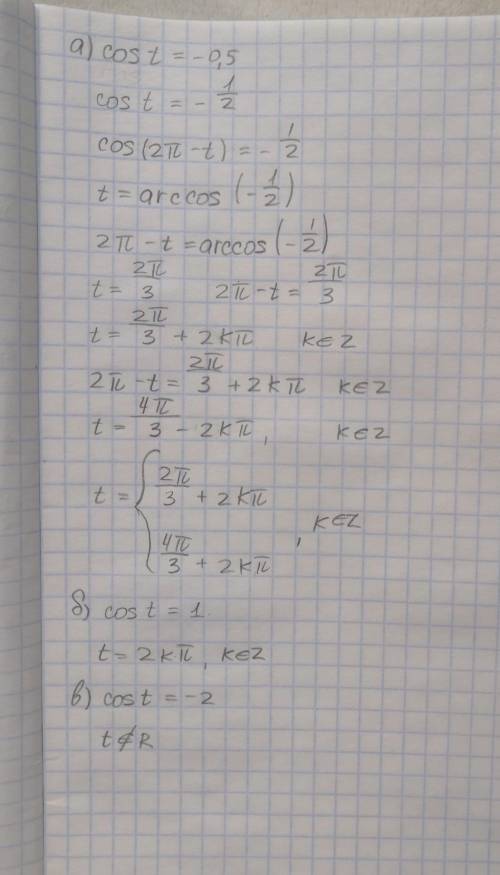 а) cos t = -0,5
cos t = - 1/2
cos(2π - t) = - 1/2
t = arccos (- 1/2)
2π - t = arccos (- 1/2)
t = 2π/3 2π - t = 2π/3
t = 2π/3 + 2kπ k∈Z
2π - t = 2π/3 + 2kπ k∈Z
t = 4π/3 - 2kπ, k∈Z
t = { 2π/3 + 2kπ
4π/3 + 2kπ , k∈Z
б) cos t = 1
t = 2kπ, k∈Z
в) cos t = -2
t ∉ R